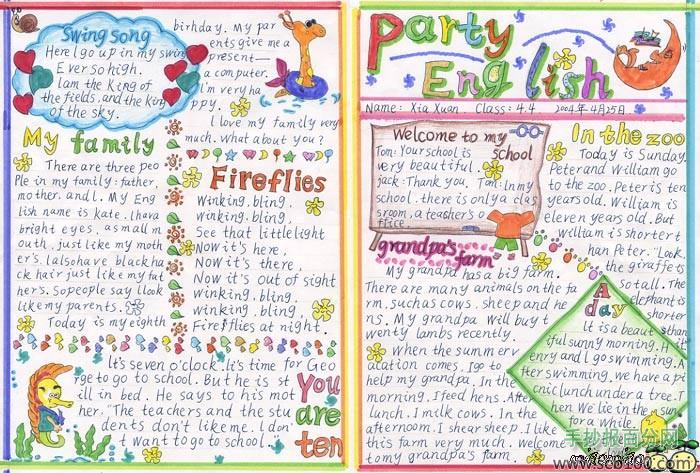 Swing song
Here I go up in my swing
Ever so high.
I am the King of
the fields, and the king
of the sky.
My family
There are three peo
Ple in my family: father,
mother, and I. My Eng
lish name is Kate. I hava
bright eyes, a small m
outh, just like my moth
er's. I also have black ha
ck hair just like my fat
her's. So people say I look
like my parents.
Today is my eighth
birthday. My par
ents give me a
present—
a computer.
I'm very ha
ppy.
I love my family very
much. What about you?
Fireflies
Winking, bling,
winking, bling.
See that little light
Now it's here,
Now it's there,
Now it's out of sight
winking, bling,
winking, bling
Fireflies at night.
It's seven o'clock. It's time for Geo
rge to go to school. But he is st
ill in bed. He says to his mot
her, "The teachers and the stu
dents don't like me. I don'
t want to go to school.
You
are
ten
Party
English
Name: Xia Xuan. Class: 4.4 2004年4月25日
Welcome to my
school
Tom: Your school is
very beautiful.
jack: Thank you. Tom: In my
school, there is only a clas
sroom, a teacher's o
ffice.
In the zoo
Today is Sunday.
Peter and William go
to the zoo. Peter is ten
years old. William is
eleven years old. But
William is shorter t
han Peter. "Look,
the giraffe is
so tall. The
elephant is
shorter
grandpa's farm
My grandpa has a big farm.
There are many animals on the fa
rm, such as cows, sheep and he
ns. My grandpa will buy t
wenty lambs recently.
When the summer v
acation comes, I go to
help my grandpa. In the
morning, I feed hens. After
lunch, I milk cows. In the
afternoon, I shear sheep. I like
this farm very much. Welcome
to my
A
day
It is a beaut
iful sunny morning. H
enry and I go swimming. A
fter swimming, we have a pi
cnic lunch under a tree. T
hen We lie in the sun
for a while.
手抄报百分网